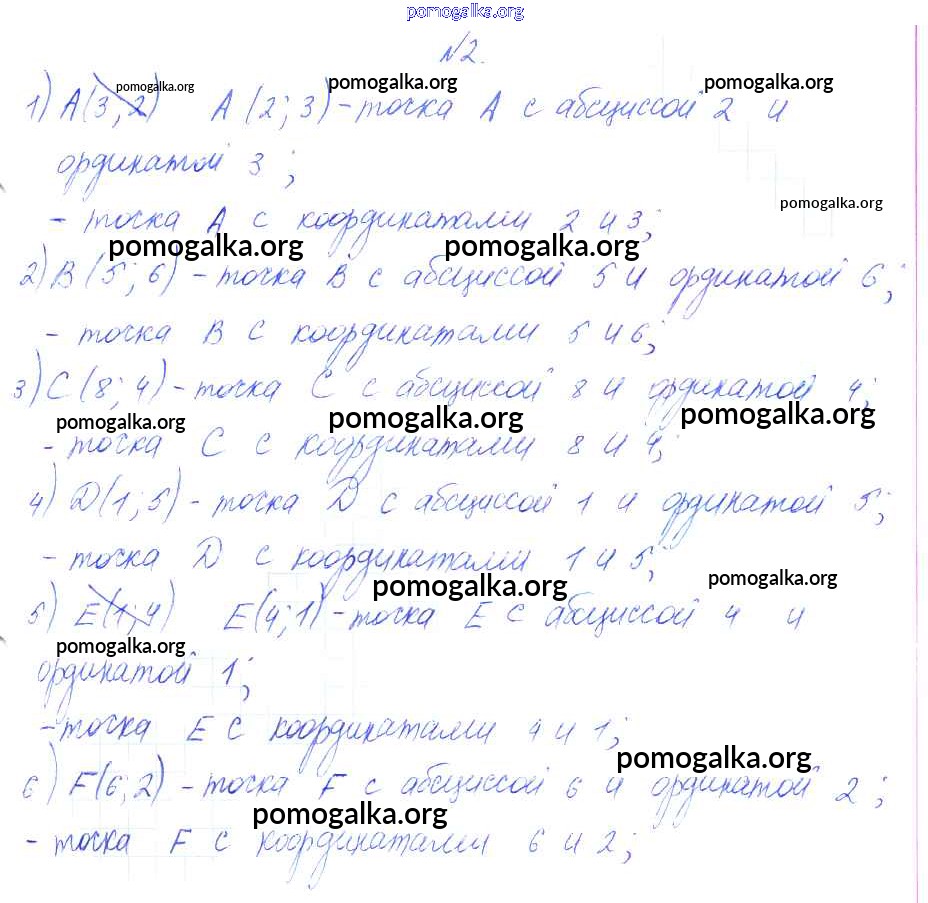 pomogalka.org
№2.
pomogalka.org pomogalka.org pomogalka.org
1) A(3; 2) A (2; 3) - точка A с абсциссой 2 и
ординатой 3 ;
pomogalka.org
- точка A с координатами 2 и 3;
pomogalka.org pomogalka.org
2) B (5; 6) - точка B с абсциссой 5 и ординатой 6;
- точка B с координатами 5 и 6;
3) C (8; 4) - точка C с абсциссой 8 и ординатой 4;
pomogalka.org pomogalka.org pomogalka.org
- точка C с координатами 8 и 4;
4) D(1; 5) - точка D с абсциссой 1 и ординатой 5;
- точка D с координатами 1 и 5;
pomogalka.org pomogalka.org
5) E(1; 4) E(4; 1) - точка E с абсциссой 4 и
pomogalka.org
ординатой 1;
- точка E с координатами 4 и 1;
pomogalka.org
6) F(6; 2) - точка F с абсциссой 6 и ординатой 2;
pomogalka.org
- точка F с координатами 6 и 2;